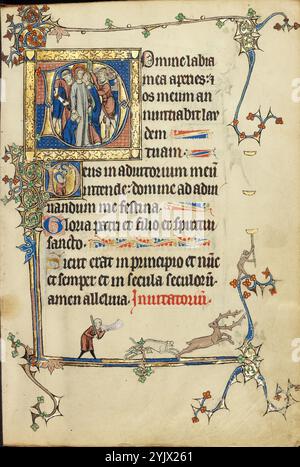 Domine labia
mea aperies: &
os meum an
nuntiabit lau
dem
tuam.
Deus in adiutorium meū
intende: domine ad adiu
uandum me festina.
Gloria patri et filio et spiritui
sancto.
Sicut erat in principio et nūc
et semper et in secula seculorū
amen alleluia. Inuitatoriū.
alamy
Image ID: 2YJX261
www.alamy.com